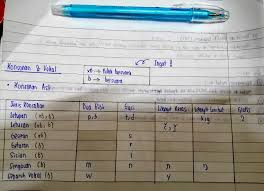 Konsonan & Vokal
tb → tidak bersuara
b → bersuara
Ingat !
• Konsonan Asli
Jenis Konsonan Dua Bibir Gusi Lelangit Keras Lelangit Lembut Glotis
Letupan (tb, b) p, b t, d k, g ʔ
Letusan (tb, b)
Geseran (tb) s
Getaran (b) r
Sisian (b) l
Sengauan (b) m n
Separuh Vokal (b) w y